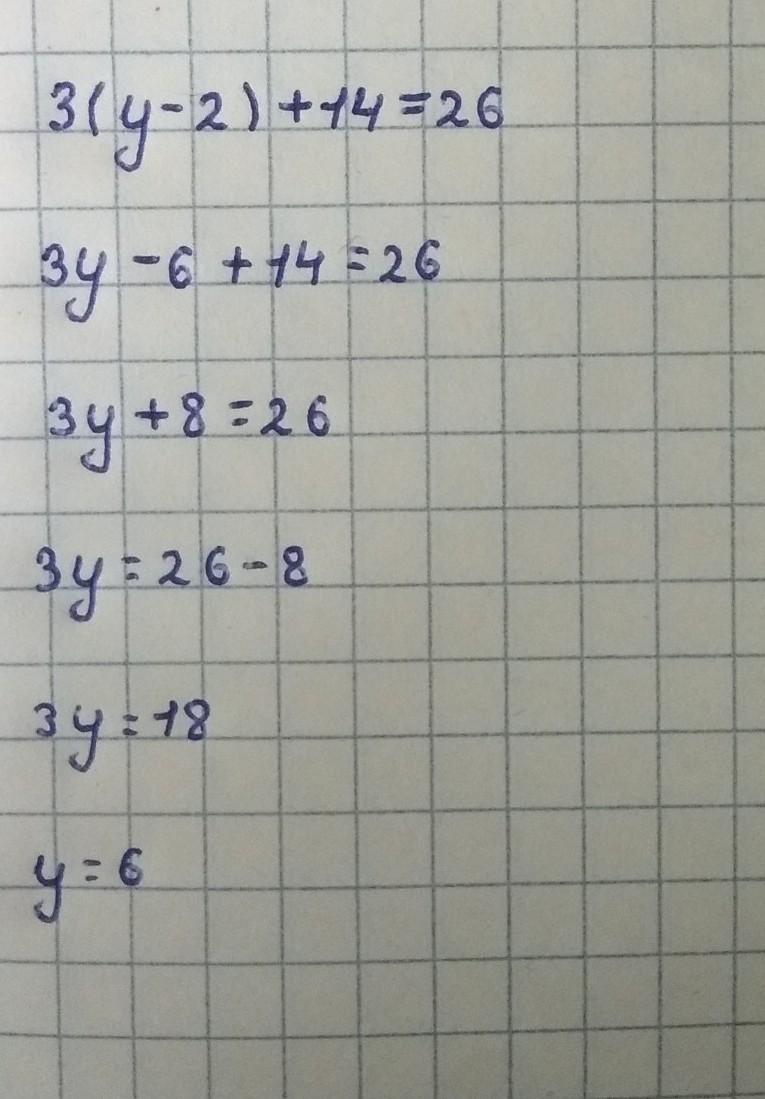 3(y-2)+14=26
3y-6+14=26
3y+8=26
3y=26-8
3y=18
y=6